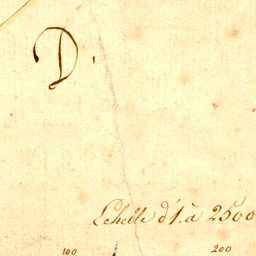 D.
Echelle d'1. à 2500
100 200